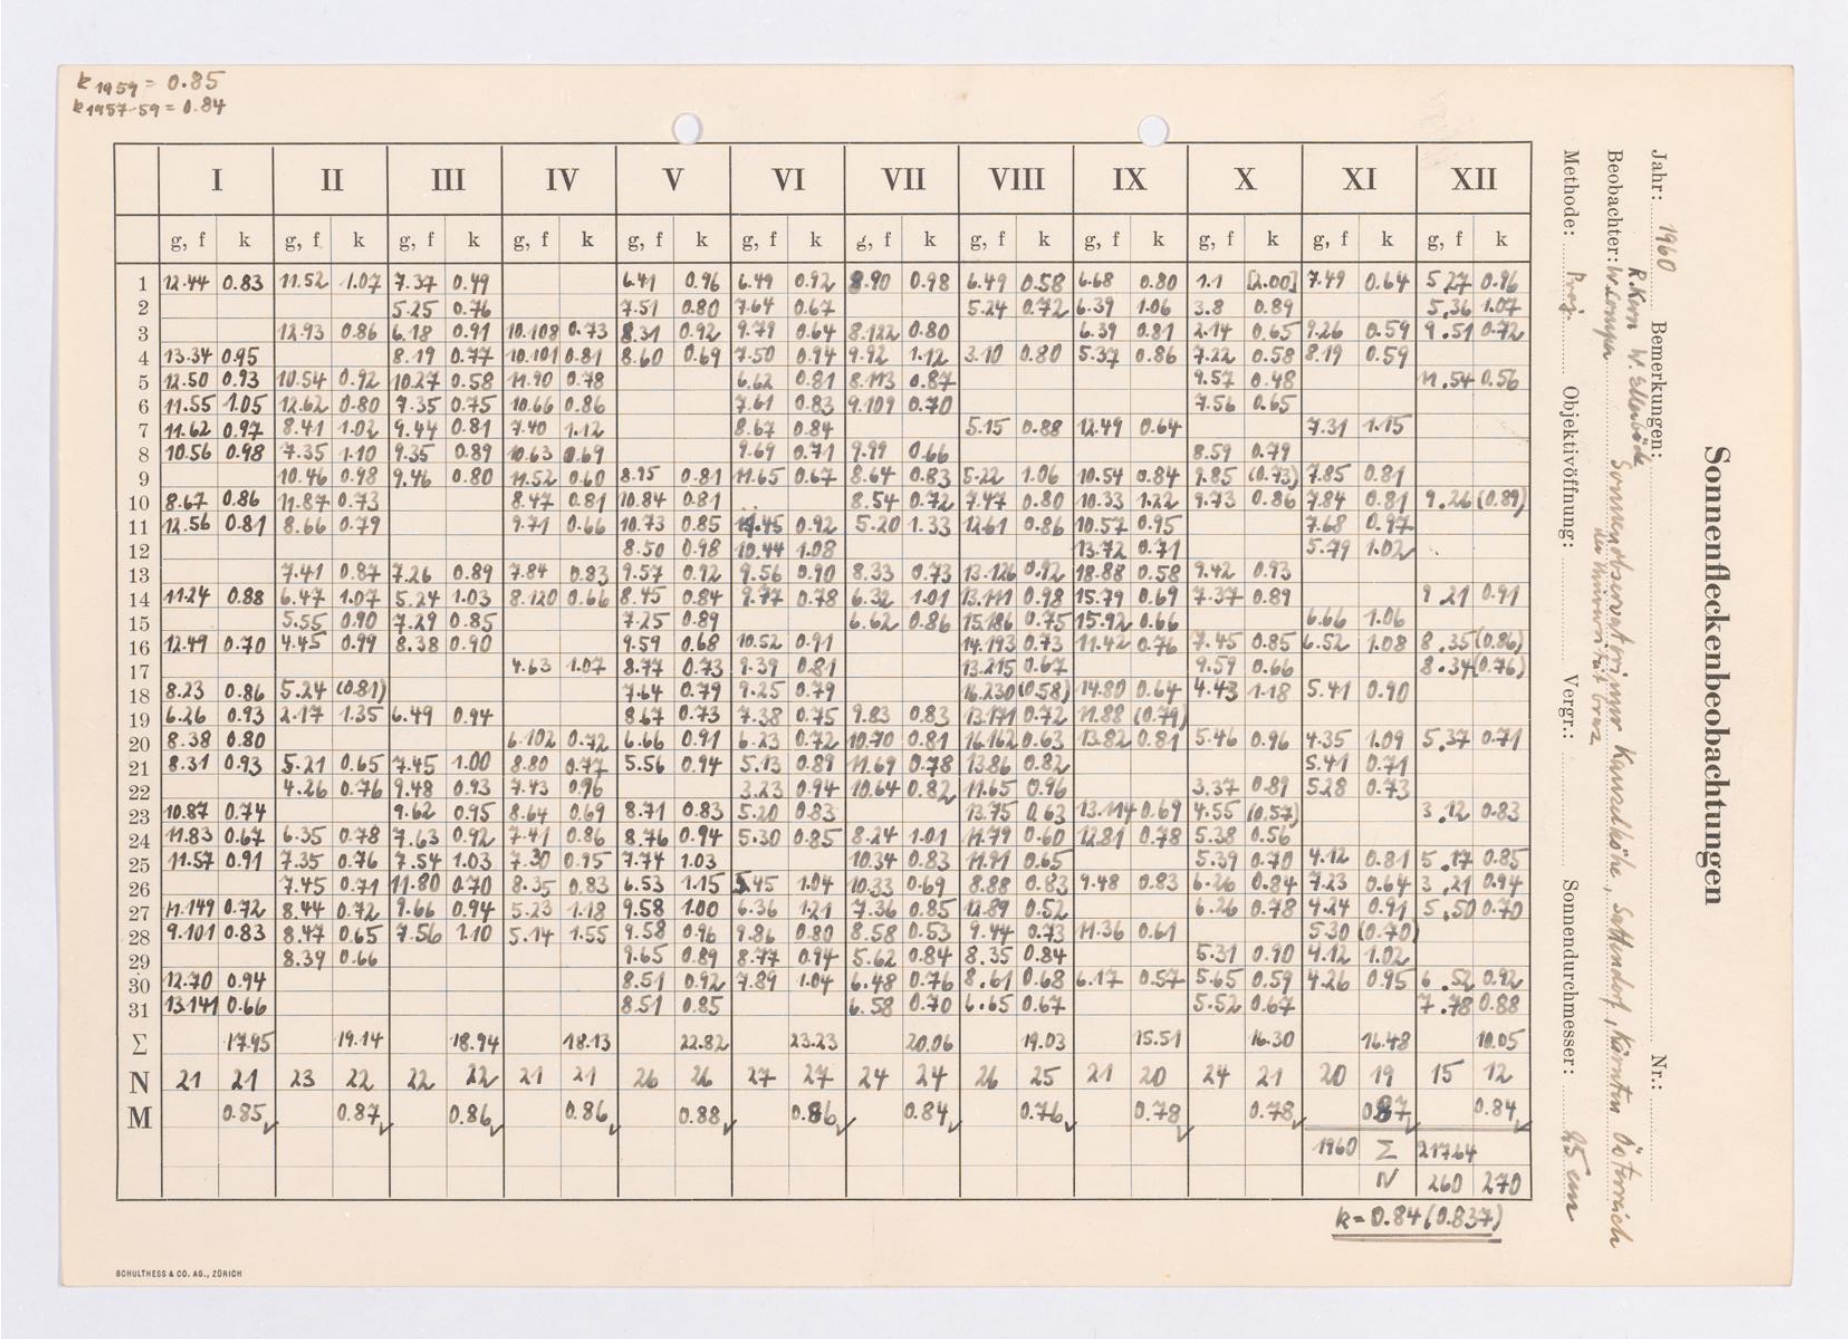 k 1959 = 0.85
k 1957-59 = 0.84
Sonnenfleckenbeobachtungen
Jahr: 1960 Bemerkungen: Nr.:
R. Kern W.
Beobachter: Sonnenobservatorium Kanzelhöhe, Sattendorf, Kärnten Österreich
der Universität Graz
Methode: Proj. Objektivöffnung: Vergr.: Sonnendurchmesser: 25 cm
I II III IV V VI VII VIII IX X XI XII
g, f k g, f k g, f k g, f k g, f k g, f k g, f k g, f k g, f k g, f k g, f k g, f k
1 12.44 0.83 11.52 1.07 7.37 0.49 6.41 0.96 6.49 0.92 8.90 0.98 6.49 0.58 6.68 0.80 1.1 [2.00] 7.49 0.64 5.27 0.96
2 5.25 0.76 7.51 0.80 7.64 0.67 5.24 0.72 6.39 1.06 3.8 0.89 5.36 1.07
3 12.93 0.86 6.18 0.91 10.108 0.73 8.31 0.92 9.79 0.64 8.122 0.80 6.39 0.81 2.14 0.65 9.26 0.59 9.51 0.72
4 13.34 0.95 8.19 0.77 10.101 0.81 8.60 0.69 7.50 0.94 9.92 1.12 3.10 0.80 5.37 0.86 7.22 0.58 8.19 0.59
5 12.50 0.93 10.54 0.92 10.27 0.58 11.90 0.78 6.62 0.81 8.113 0.87 9.57 0.48 11.54 0.56
6 11.55 1.05 12.62 0.80 7.35 0.75 10.66 0.86 7.61 0.83 9.109 0.70 7.56 0.65
7 11.62 0.97 8.41 1.02 9.44 0.81 7.40 1.12 8.67 0.84 5.15 0.88 12.49 0.64 7.31 1.15
8 10.56 0.98 7.35 1.10 9.35 0.89 10.63 0.69 9.69 0.71 9.99 0.66 8.59 0.79
9 10.46 0.98 9.46 0.80 11.52 0.60 8.95 0.81 11.65 0.67 8.64 0.83 5.22 1.06 10.54 0.84 9.85 (0.73) 7.85 0.81
10 8.67 0.86 11.87 0.73 8.47 0.81 10.84 0.81 8.54 0.72 7.47 0.80 10.33 1.22 9.73 0.86 7.84 0.81 9.26 (0.89)
11 12.56 0.81 8.66 0.79 9.71 0.66 10.73 0.85 .45 0.92 5.20 1.33 12.61 0.86 10.57 0.95 7.68 0.97
12 8.50 0.98 10.44 1.08 13.72 0.71 5.79 1.02
13 7.41 0.87 7.26 0.89 7.84 0.83 9.57 0.92 9.56 0.90 8.33 0.73 13.126 0.92 18.88 0.58 9.42 0.93
14 11.24 0.88 6.47 1.07 5.24 1.03 8.120 0.66 8.45 0.84 9.77 0.78 6.32 1.01 13.111 0.98 15.79 0.69 7.37 0.89 9.21 0.91
15 5.55 0.90 7.29 0.85 7.25 0.89 6.62 0.86 15.186 0.75 15.92 0.66 6.66 1.06
16 12.49 0.70 4.45 0.99 8.38 0.90 9.59 0.68 10.52 0.91 14.193 0.73 11.42 0.76 7.45 0.85 6.52 1.08 8.35 (0.86)
17 4.63 1.07 8.77 0.73 9.39 0.81 13.215 0.67 9.59 0.66 8.34 (0.76)
18 8.23 0.86 5.24 (0.81) 7.64 0.79 9.25 0.79 16.230 (0.58) 14.80 0.64 4.43 1.18 5.41 0.90
19 6.26 0.93 2.17 1.35 6.49 0.94 8.67 0.73 7.38 0.75 9.83 0.83 13.171 0.72 11.88 (0.79)
20 8.38 0.80 6.102 0.72 6.66 0.91 6.23 0.72 10.70 0.81 16.162 0.63 13.82 0.81 5.46 0.96 4.35 1.09 5.37 0.71
21 8.31 0.93 5.21 0.65 7.45 1.00 8.80 0.77 5.56 0.94 5.13 0.89 11.69 0.78 13.86 0.82 5.41 0.71
22 4.26 0.76 9.48 0.93 7.43 0.96 3.23 0.94 10.64 0.82 11.65 0.96 3.37 0.89 5.28 0.73
23 10.87 0.74 9.62 0.95 8.64 0.69 8.71 0.83 5.20 0.83 13.75 0.63 13.114 0.69 4.55 (0.57) 3.12 0.83
24 11.83 0.67 6.35 0.78 7.63 0.92 7.41 0.86 8.76 0.94 5.30 0.85 8.24 1.01 11.79 0.60 12.81 0.78 5.38 0.56
25 11.57 0.91 7.35 0.76 7.54 1.03 7.30 0.95 7.74 1.03 10.34 0.83 11.91 0.65 5.39 0.70 4.12 0.81 5.17 0.85
26 7.45 0.71 11.80 0.70 8.35 0.83 6.53 1.15 5.45 1.04 10.33 0.69 8.88 0.83 9.48 0.83 6.26 0.84 7.23 0.64 3.21 0.94
27 11.149 0.72 8.44 0.72 9.66 0.94 5.23 1.18 9.58 1.00 6.36 1.21 7.36 0.85 12.89 0.52 6.26 0.78 4.24 0.91 5.50 0.70
28 9.101 0.83 8.47 0.65 7.56 1.10 5.14 1.55 9.58 0.96 9.86 0.80 8.58 0.53 9.44 0.73 11.36 0.61 5.30 (0.70)
29 8.39 0.66 9.65 0.89 8.77 0.94 5.62 0.84 8.35 0.84 5.31 0.90 4.12 1.02
30 12.70 0.94 8.51 0.92 7.89 1.04 6.48 0.76 8.61 0.68 6.17 0.57 5.65 0.59 4.26 0.95 6.52 0.92
31 13.141 0.66 8.51 0.85 6.58 0.70 6.65 0.67 5.52 0.67 7.78 0.88
Σ 17.95 19.14 18.94 18.13 22.82 23.23 20.06 19.03 15.51 16.30 16.48 10.05
N 21 21 23 22 22 22 21 21 26 26 27 27 24 24 26 25 21 20 24 21 20 19 15 12
M 0.85 0.87 0.86 0.86 0.88 0.86 0.84 0.76 0.78 0.78 0.87 0.84
1960 Σ 217.64
N 260 270
k = 0.84 (0.837)
SCHULTHESS & CO. AG., ZÜRICH